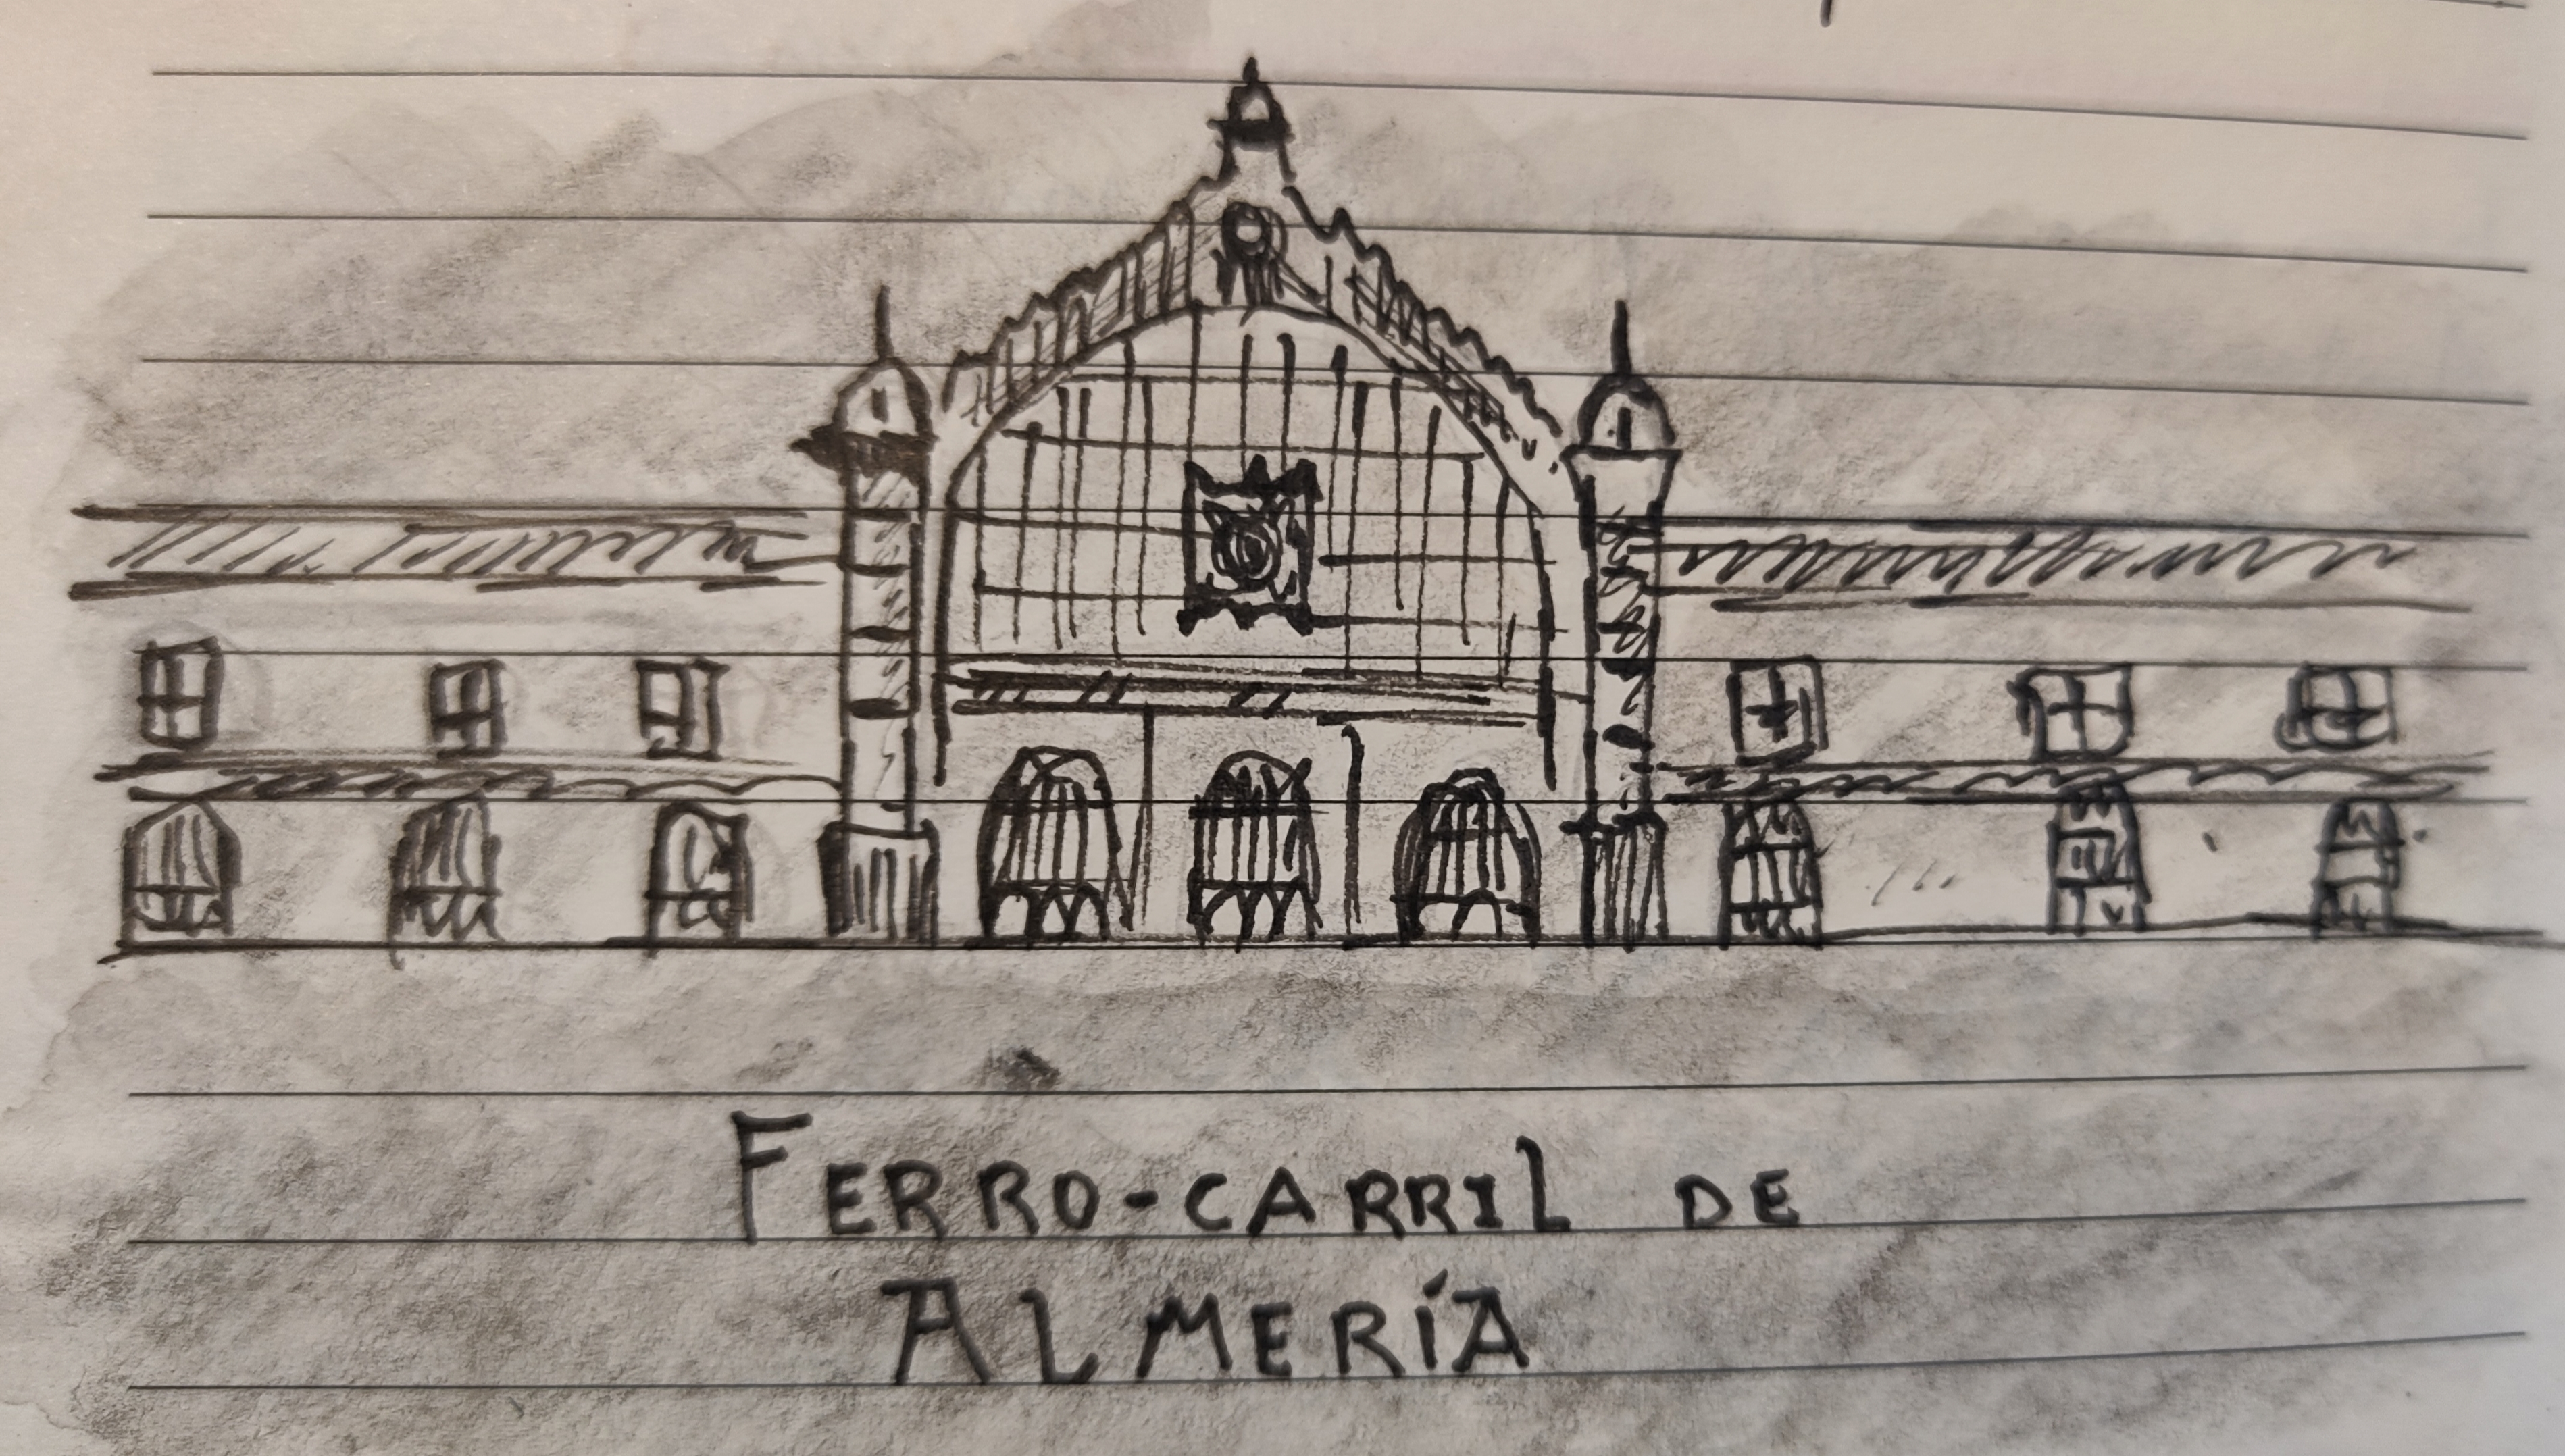 FERRO-CARRIL DE
ALMERÍA